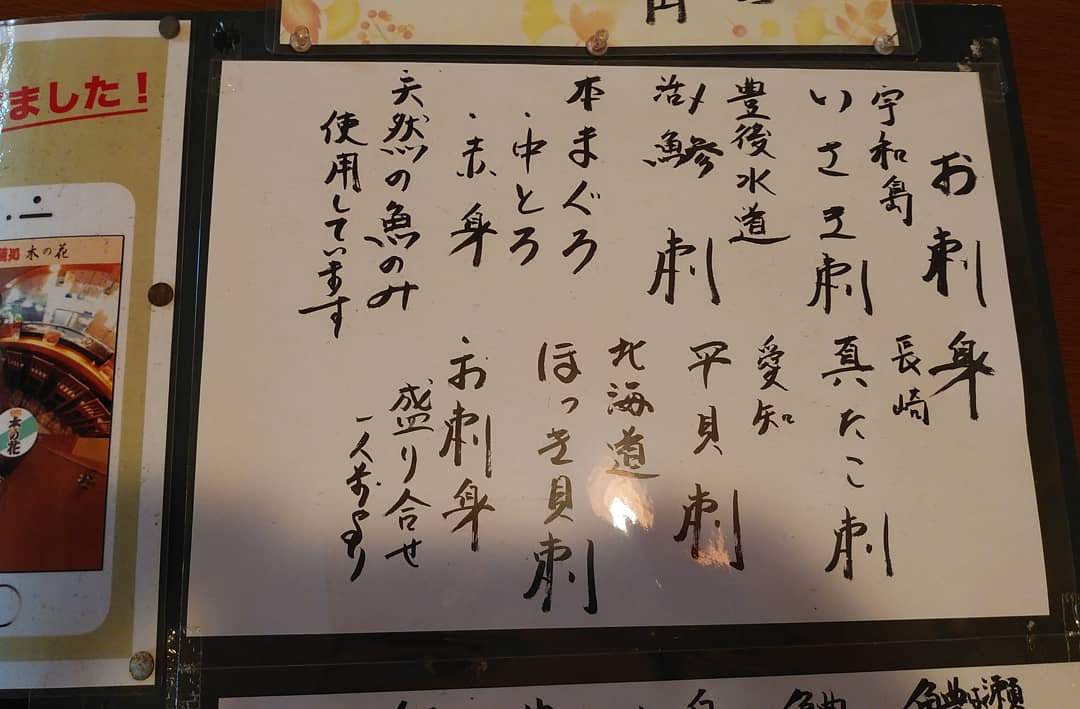 お刺身
宇和島
いさき刺
豊後水道
活〆鯵刺
本まぐろ
・中とろ
・赤身
天然の魚のみ
使用しています
長崎
真たこ刺
愛知
平貝刺
北海道
ほっき貝刺
・お刺身
盛り合せ
一人前より
ました！
木の花
木の花
円